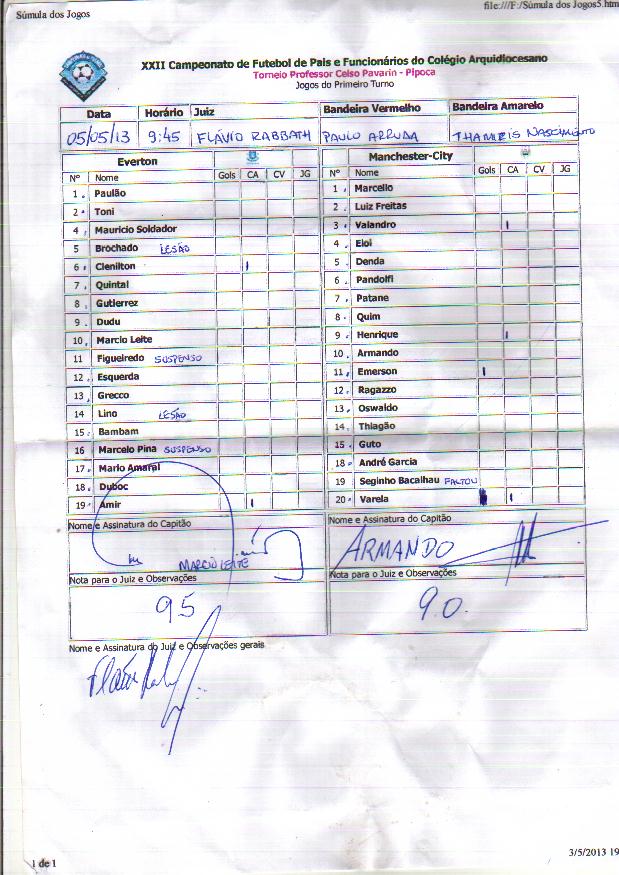 Súmula dos Jogos
file:///F:/Súmula dos Jogos5.htm
XXII Campeonato de Futebol de Pais e Funcionários do Colégio Arquidiocesano
Torneio Professor Celso Pavarin - Pipoca
Jogos do Primeiro Turno
Data Horário Juiz Bandeira Vermelho Bandeira Amarelo
05/05/13 9:45 FLÁVIO RABBATH PAULO ARRUDA THAMIRIS NASCIMENTO
Everton Manchester-City
Nº Nome Gols CA CV JG Nº Nome Gols CA CV JG
1 Paulão 1 Marcello
2 Toni 2 Luiz Freitas
4 Mauricio Soldador 3 Valandro I
5 Brochado LESÃO 4 Eloi
6 Clenilton I 5 Denda
7 Quintal 6 Pandolfi
8 Gutierrez 7 Patane
9 Dudu 8 Quim
10 Marcio Leite 9 Henrique I
11 Figueiredo SUSPENSO 10 Armando
12 Esquerda 11 Emerson I
13 Grecco 12 Ragazzo
14 Lino LESÃO 13 Oswaldo
15 Bambam 14 Thiagão
16 Marcelo Pina SUSPENSO 15 Guto
17 Mario Amaral 18 André Garcia
18 Duboc 19 Seginho Bacalhau FALTOU
19 Amir I 20 Varela I
Nome e Assinatura do Capitão Nome e Assinatura do Capitão
MARCIO LEITE ARMANDO
Nota para o Juiz e Observações Nota para o Juiz e Observações
95 9.0.
Nome e Assinatura do Juiz e Observações gerais
1 de 1
3/5/2013 19